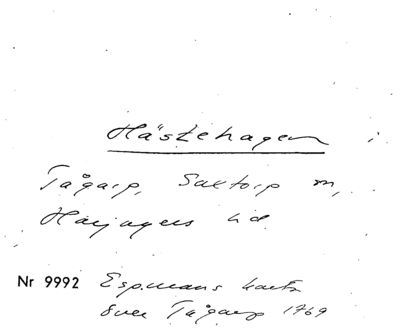 Hästehagen i
Tågarp, Saxtorp sn,
Harjagers hd.
Nr 9992 Espmans karta
över Tågarp 1769